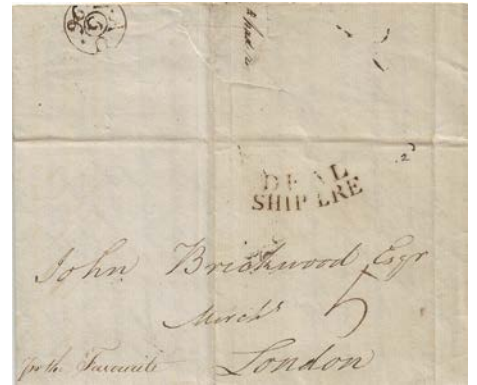 DEAL
SHIP LRE
John Brickwood Esqr
Mercht
5
London
pr the Favourite